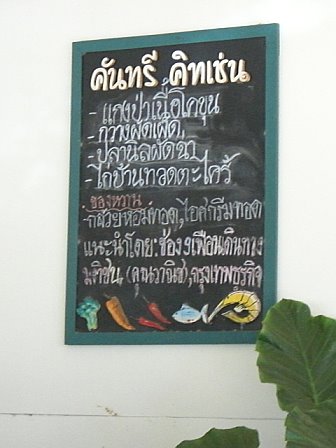 คันทรี คิทเช่น
- แกงป่าเนื้อโคขุน
- กวางผัดเผ็ด
- ปลานิลผัดฉ่า
- ไก่บ้านทอดตะไคร้
ของหวาน
กล้วยหอมทอด, ไอศกรีมทอด
แนะนำโดย: ช่อง 9 เพื่อนเดินทาง
มติชน, (คุณวานิช), กรุงเทพธุรกิจ